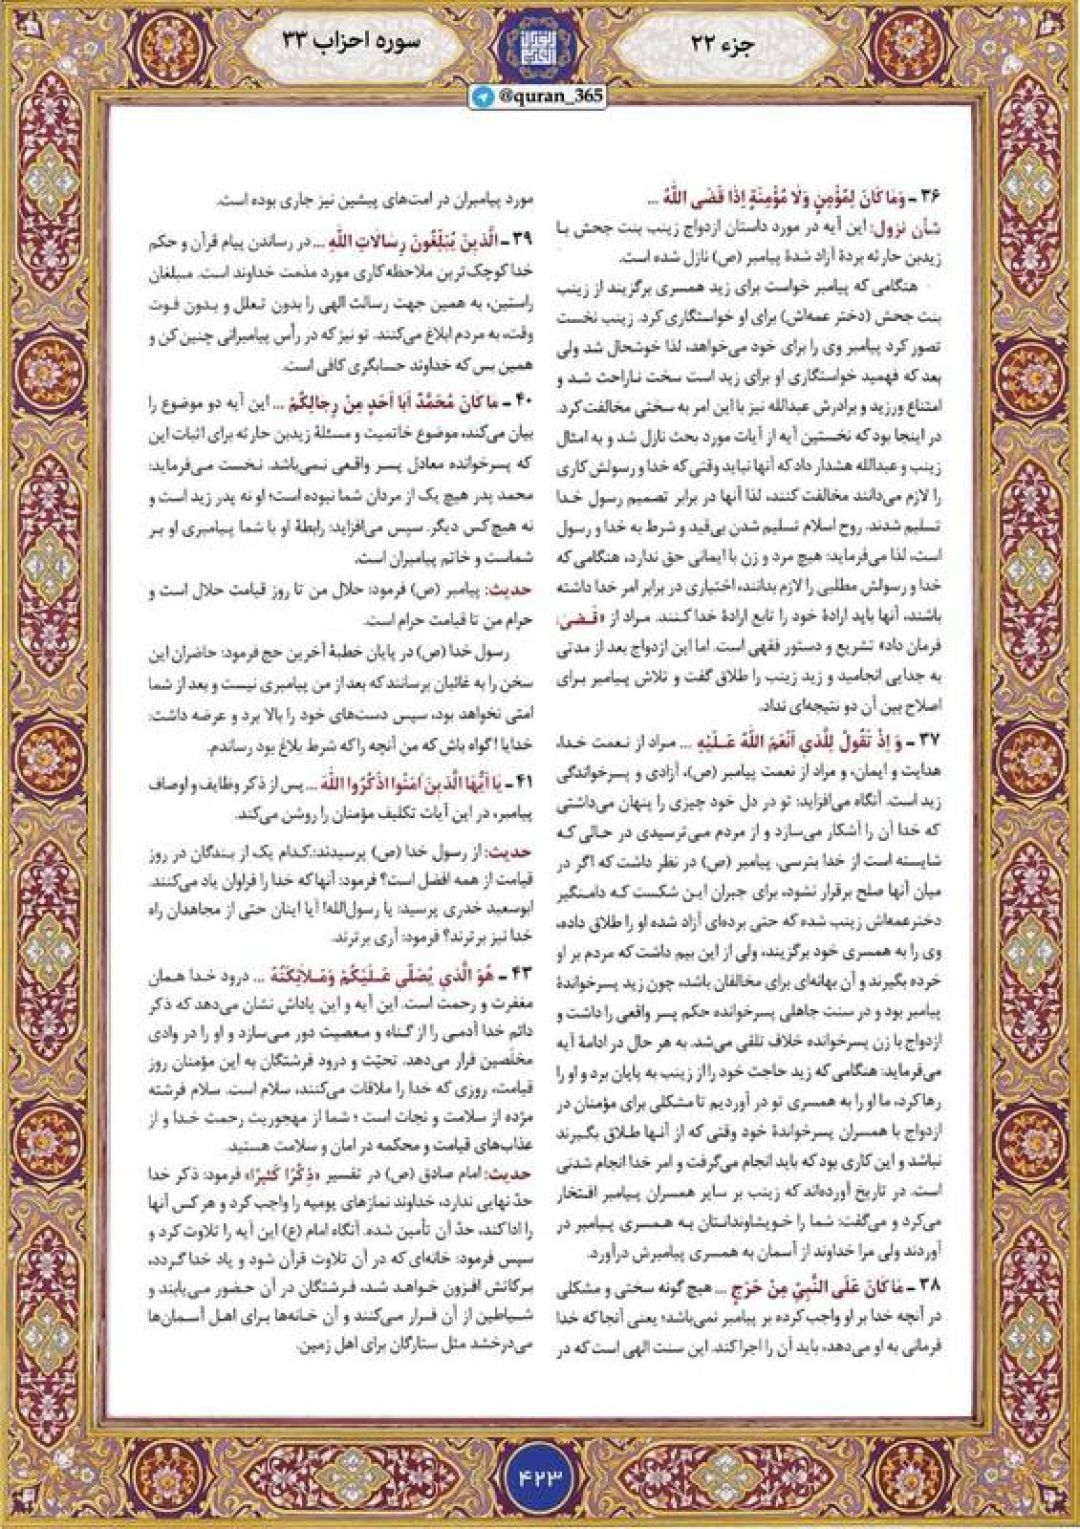 جزء ۲۲
سوره احزاب ۳۳
@quran_365
۳۶ - وَمَا كَانَ لِمُؤْمِنٍ وَلَا مُؤْمِنَةٍ إِذَا قَضَى اللَّهُ ...
شأن نزول: این آیه در مورد داستان ازدواج زینب بنت جحش با
زیدبن حارثه بردهٔ آزاد شدهٔ پیامبر (ص) نازل شده است.
هنگامی که پیامبر خواست برای زید همسری برگزیند از زینب
بنت جحش (دختر عمه‌اش) برای او خواستگاری کرد. زینب نخست
تصور کرد پیامبر وی را برای خود می‌خواهد، لذا خوشحال شد ولی
بعد که فهمید خواستگاری او برای زید است سخت ناراحت شد و
امتناع ورزید و برادرش عبدالله نیز با این امر به سختی مخالفت کرد.
در اینجا بود که نخستین آیه از آیات مورد بحث نازل شد و به امثال
زینب و عبدالله هشدار داد که آنها نباید وقتی که خدا و رسولش کاری
را لازم می‌دانند مخالفت کنند، لذا آنها در برابر تصمیم رسول خدا
تسلیم شدند. روح اسلام تسلیم شدن بی‌قید و شرط به خدا و رسول
است، لذا می‌فرماید: هیچ مرد و زن با ایمانی حق ندارد، هنگامی که
خدا و رسولش مطلبی را لازم بدانند، اختیاری در برابر امر خدا داشته
باشند، آنها باید ارادهٔ خود را تابع ارادهٔ خدا کنند. مراد از «قَضَی:
فرمان داد» تشریع و دستور فقهی است. اما این ازدواج بعد از مدتی
به جدایی انجامید و زید زینب را طلاق گفت و تلاش پیامبر برای
اصلاح بین آن دو نتیجه‌ای نداد.
۳۷ - وَ إِذْ تَقُولُ لِلَّذِي أَنْعَمَ اللَّهُ عَلَيْهِ ... مراد از نعمت خدا،
هدایت و ایمان، و مراد از نعمت پیامبر (ص)، آزادی و پسرخواندگی
زید است. آنگاه می‌افزاید: تو در دل خود چیزی را پنهان می‌داشتی
که خدا آن را آشکار می‌سازد و از مردم می‌ترسیدی در حالی که
شایسته است از خدا بترسی. پیامبر (ص) در نظر داشت که اگر در
میان آنها صلح برقرار نشود، برای جبران این شکست که دامنگیر
دخترعمه‌اش زینب شده که حتی برده‌ای آزاد شده او را طلاق داده،
وی را به همسری خود برگزیند، ولی از این بیم داشت که مردم بر او
خرده بگیرند و آن بهانه‌ای برای مخالفان باشد، چون زید پسرخواندهٔ
پیامبر بود و در سنت جاهلی پسرخوانده حکم پسر واقعی را داشت و
ازدواج با زن پسرخوانده خلاف تلقی می‌شد. به هر حال در ادامهٔ آیه
می‌فرماید: هنگامی که زید حاجت خود را از زینب به پایان برد و او را
رها کرد، ما او را به همسری تو در آوردیم تا مشکلی برای مؤمنان در
ازدواج با همسران پسرخواندهٔ خود وقتی که از آنها طلاق بگیرند
نباشد و این کاری بود که باید انجام می‌گرفت و امر خدا انجام شدنی
است. در تاریخ آورده‌اند که زینب بر سایر همسران پیامبر افتخار
می‌کرد و می‌گفت: شما را خویشاوندانتان به همسری پیامبر در
آوردند ولی مرا خداوند از آسمان به همسری پیامبرش درآورد.
۳۸ - مَا كَانَ عَلَى النَّبِيِّ مِنْ حَرَجٍ ... هیچ گونه سختی و مشکلی
در آنچه خدا بر او واجب کرده بر پیامبر نمی‌باشد؛ یعنی آنجا که خدا
فرمانی به او می‌دهد، باید آن را اجرا کند. این سنت الهی است که در
مورد پیامبران در امت‌های پیشین نیز جاری بوده است.
۳۹ - الَّذِينَ يُبَلِّغُونَ رِسَالَاتِ اللَّهِ ... در رساندن پیام قرآن و حکم
خدا کوچک‌ترین ملاحظه‌کاری مورد مذمت خداوند است. مبلغان
راستین، به همین جهت رسالت الهی را بدون تعلل و بدون فوت
وقت، به مردم ابلاغ می‌کنند. تو نیز که در رأس پیامبرانی چنین کن و
همین بس که خداوند حسابگری کافی است.
۴۰ - مَا كَانَ مُحَمَّدٌ أَبَا أَحَدٍ مِنْ رِجَالِكُمْ ... این آیه دو موضوع را
بیان می‌کند، موضوع خاتمیت و مسئلهٔ زیدبن حارثه برای اثبات این
که پسرخوانده معادل پسر واقعی نمی‌باشد. نخست می‌فرماید:
محمد پدر هیچ یک از مردان شما نبوده است؛ او نه پدر زید است و
نه هیچ کس دیگر. سپس می‌افزاید: رابطهٔ او با شما پیامبری او بر
شماست و خاتم پیامبران است.
حدیث: پیامبر (ص) فرمود: حلال من تا روز قیامت حلال است و
حرام من تا قیامت حرام است.
رسول خدا (ص) در پایان خطبهٔ آخرین حج فرمود: حاضران این
سخن را به غائبان برسانند که بعد از من پیامبری نیست و بعد از شما
امتی نخواهد بود، سپس دست‌های خود را بالا برد و عرضه داشت:
خدایا! گواه باش که من آنچه را که شرط بلاغ بود رساندم.
۴۱ - يَا أَيُّهَا الَّذِينَ آمَنُوا اذْكُرُوا اللَّهَ ... پس از ذکر وظایف و اوصاف
پیامبر، در این آیات تکلیف مؤمنان را روشن می‌کند.
حدیث: از رسول خدا (ص) پرسیدند: کدام یک از بندگان در روز
قیامت از همه افضل است؟ فرمود: آنها که خدا را فراوان یاد می‌کنند.
ابوسعید خدری پرسید: یا رسول‌الله! آیا اینان حتی از مجاهدان راه
خدا نیز برترند؟ فرمود: آری برترند.
۴۳ - هُوَ الَّذِي يُصَلِّي عَلَيْكُمْ وَمَلَائِكَتُهُ ... درود خدا همان
مغفرت و رحمت است. این آیه و این پاداش نشان می‌دهد که ذکر
دائم خدا آدمی را از گناه و معصیت دور می‌سازد و او را در وادی
مخلَصین قرار می‌دهد. تحیّت و درود فرشتگان به این مؤمنان روز
قیامت، روزی که خدا را ملاقات می‌کنند، سلام است. سلام فرشته
مژده از سلامت و نجات است ؛ شما از مهجوریت رحمت خدا و از
عذاب‌های قیامت و محکمه در امان و سلامت هستید.
حدیث: امام صادق (ص) در تفسیر «ذِكْرًا كَثِيرًا» فرمود: ذکر خدا
حدّ نهایی ندارد، خداوند نمازهای یومیه را واجب کرد و هر کس آنها
را ادا کند، حدّ آن تأمین شده. آنگاه امام (ع) این آیه را تلاوت کرد و
سپس فرمود: خانه‌ای که در آن تلاوت قرآن شود و یاد خدا گردد،
برکاتش افزون خواهد شد، فرشتگان در آن حضور می‌یابند و
شیاطین از آن فرار می‌کنند و آن خانه‌ها برای اهل آسمان‌ها
می‌درخشد مثل ستارگان برای اهل زمین.
۴۲۳